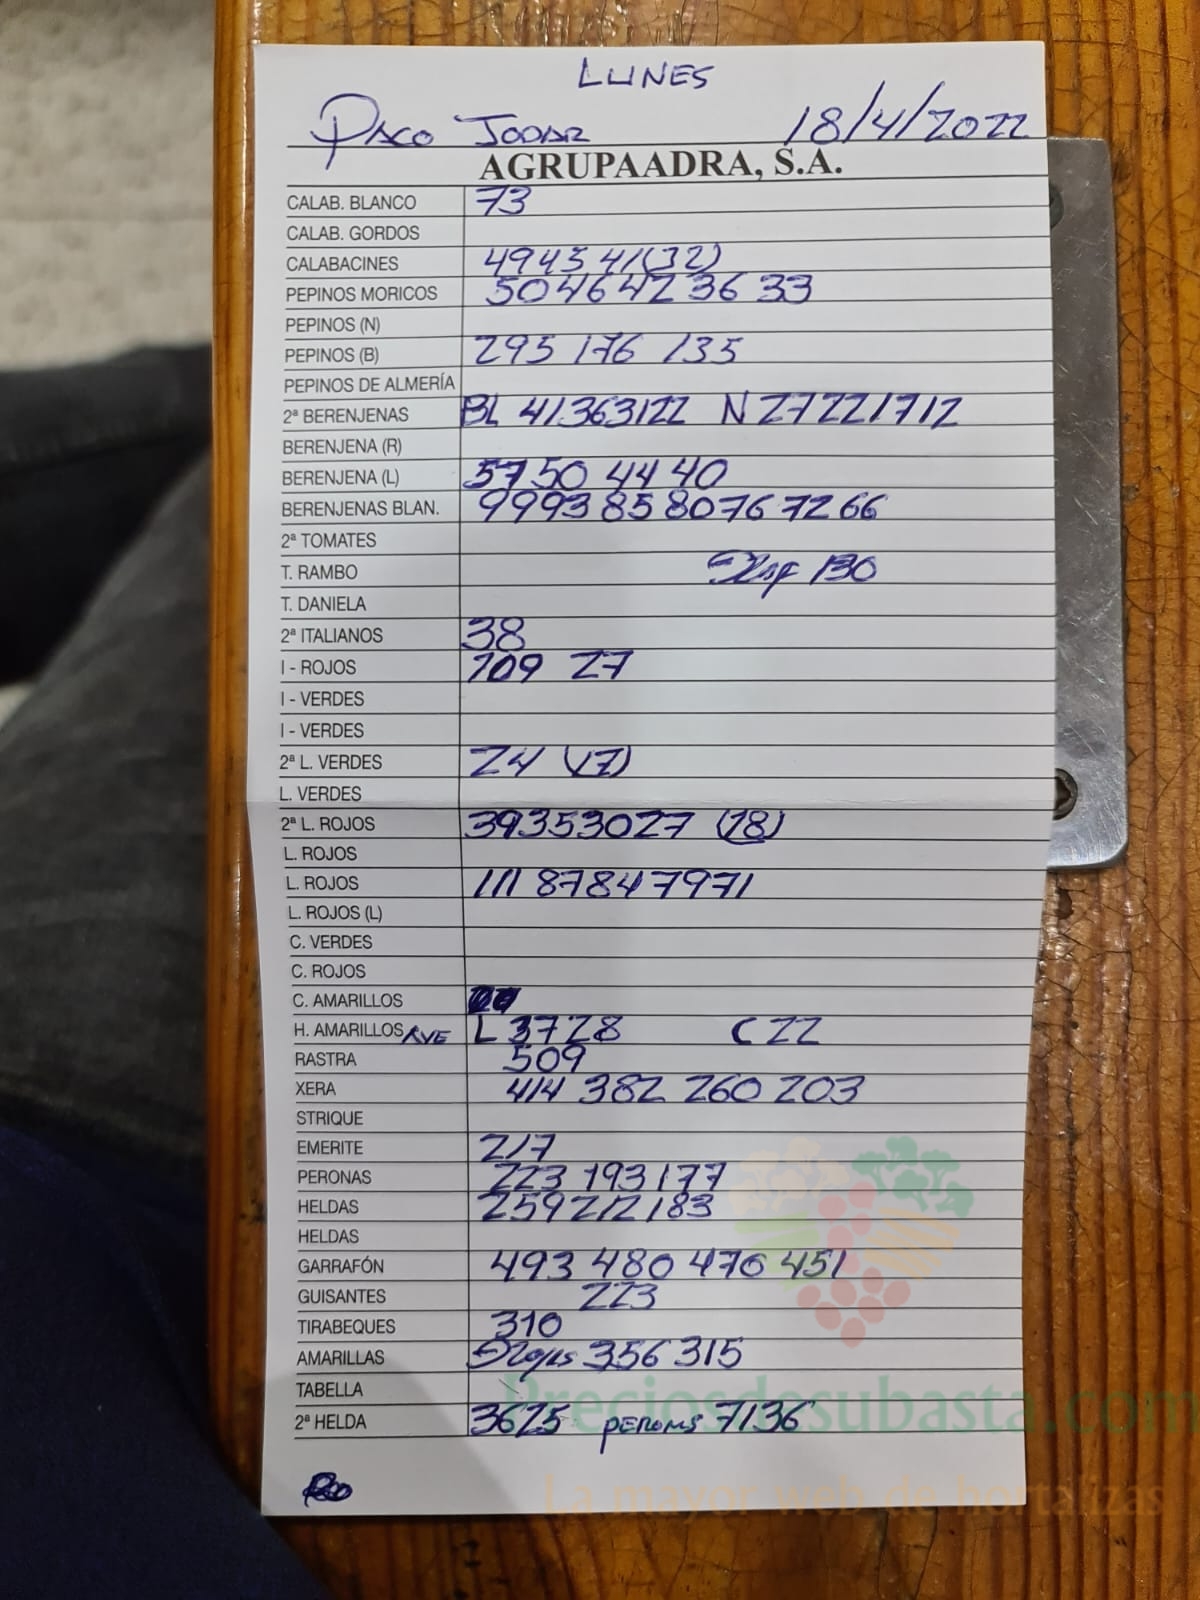 LUNES
PACO JODAR 18/4/2022
AGRUPAADRA, S.A.
CALAB. BLANCO 73
CALAB. GORDOS
CALABACINES 49 45 41 (32)
PEPINOS MORICOS 50 46 42 36 33
PEPINOS (N)
PEPINOS (B) 295 176 135
PEPINOS DE ALMERÍA
2ª BERENJENAS BL 41 36 31 22 N 27 22 17 12
BERENJENA (R)
BERENJENA (L) 57 50 44 40
BERENJENAS BLAN. 99 93 85 80 76 72 66
2ª TOMATES
T. RAMBO 130
T. DANIELA
2ª ITALIANOS 38
I - ROJOS 109 27
I - VERDES
I - VERDES
2ª L. VERDES 24 (17)
L. VERDES
2ª L. ROJOS 39 35 30 27 (18)
L. ROJOS
L. ROJOS 111 87 84 79 71
L. ROJOS (L)
C. VERDES
C. ROJOS
C. AMARILLOS
H. AMARILLOS AVE L 37 28 C 22
RASTRA 509
XERA 414 382 260 203
STRIQUE
EMERITE 217
PERONAS 223 193 177
HELDAS 259 212 183
HELDAS
GARRAFÓN 493 480 476 451
GUISANTES 223
TIRABEQUES 310
AMARILLAS Rojas 356 315
TABELLA
2ª HELDA 36 25 PERONAS 71 36
Preciosdesubasta.com
La mayor web de hortalizas